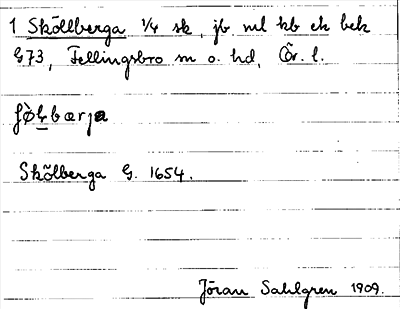 1 Sköllberga 1/4 sk, jb. ml kb ek bek
G73, Fellingsbro sn o. hd, Ör. l.
Skölberga G. 1654.
Jöran Sahlgren 1909.